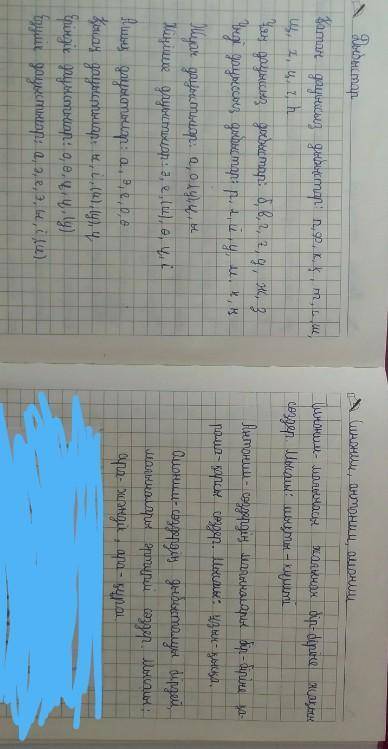 Дыбыстар
Қатаң дауыссыз дыбыстар: п, ф, к, қ, т, с, ш,
щ, х, ц, ч, һ
Ұяң дауыссыз дыбыстар: б, в, г, ғ, д, ж, з
Үнді дауыссыз дыбыстар: р, л, й, у, м, н, ң
Жуан дауыстылар: а, о, (у), ұ, ы
Жіңішке дауыстылар: ә, е, (и), ө, ү, і
Ашық дауыстылар: а, ә, е, о, ө
Қысаң дауыстылар: ы, і, (и), (у), ұ, ү
Еріндік дауыстылар: о, ө, ұ, ү, (у)
Езулік дауыстылар: а, ә, е, ы, і, (и)
Синоним, антоним, омоним
Синоним - мағынасы жағынан бір-біріне жақын
сөздер. Мысалы: мықты - күшті
Антоним - сөздердің мағыналары бір-біріне қа-
рама-қарсы сөздер. Мысалы: ұзын-қысқа.
Омоним-сөздердің дыбысталуы бірдей,
мағыналары әртүрлі сөздер. Мысалы:
ара - жәндік, ара - құрал